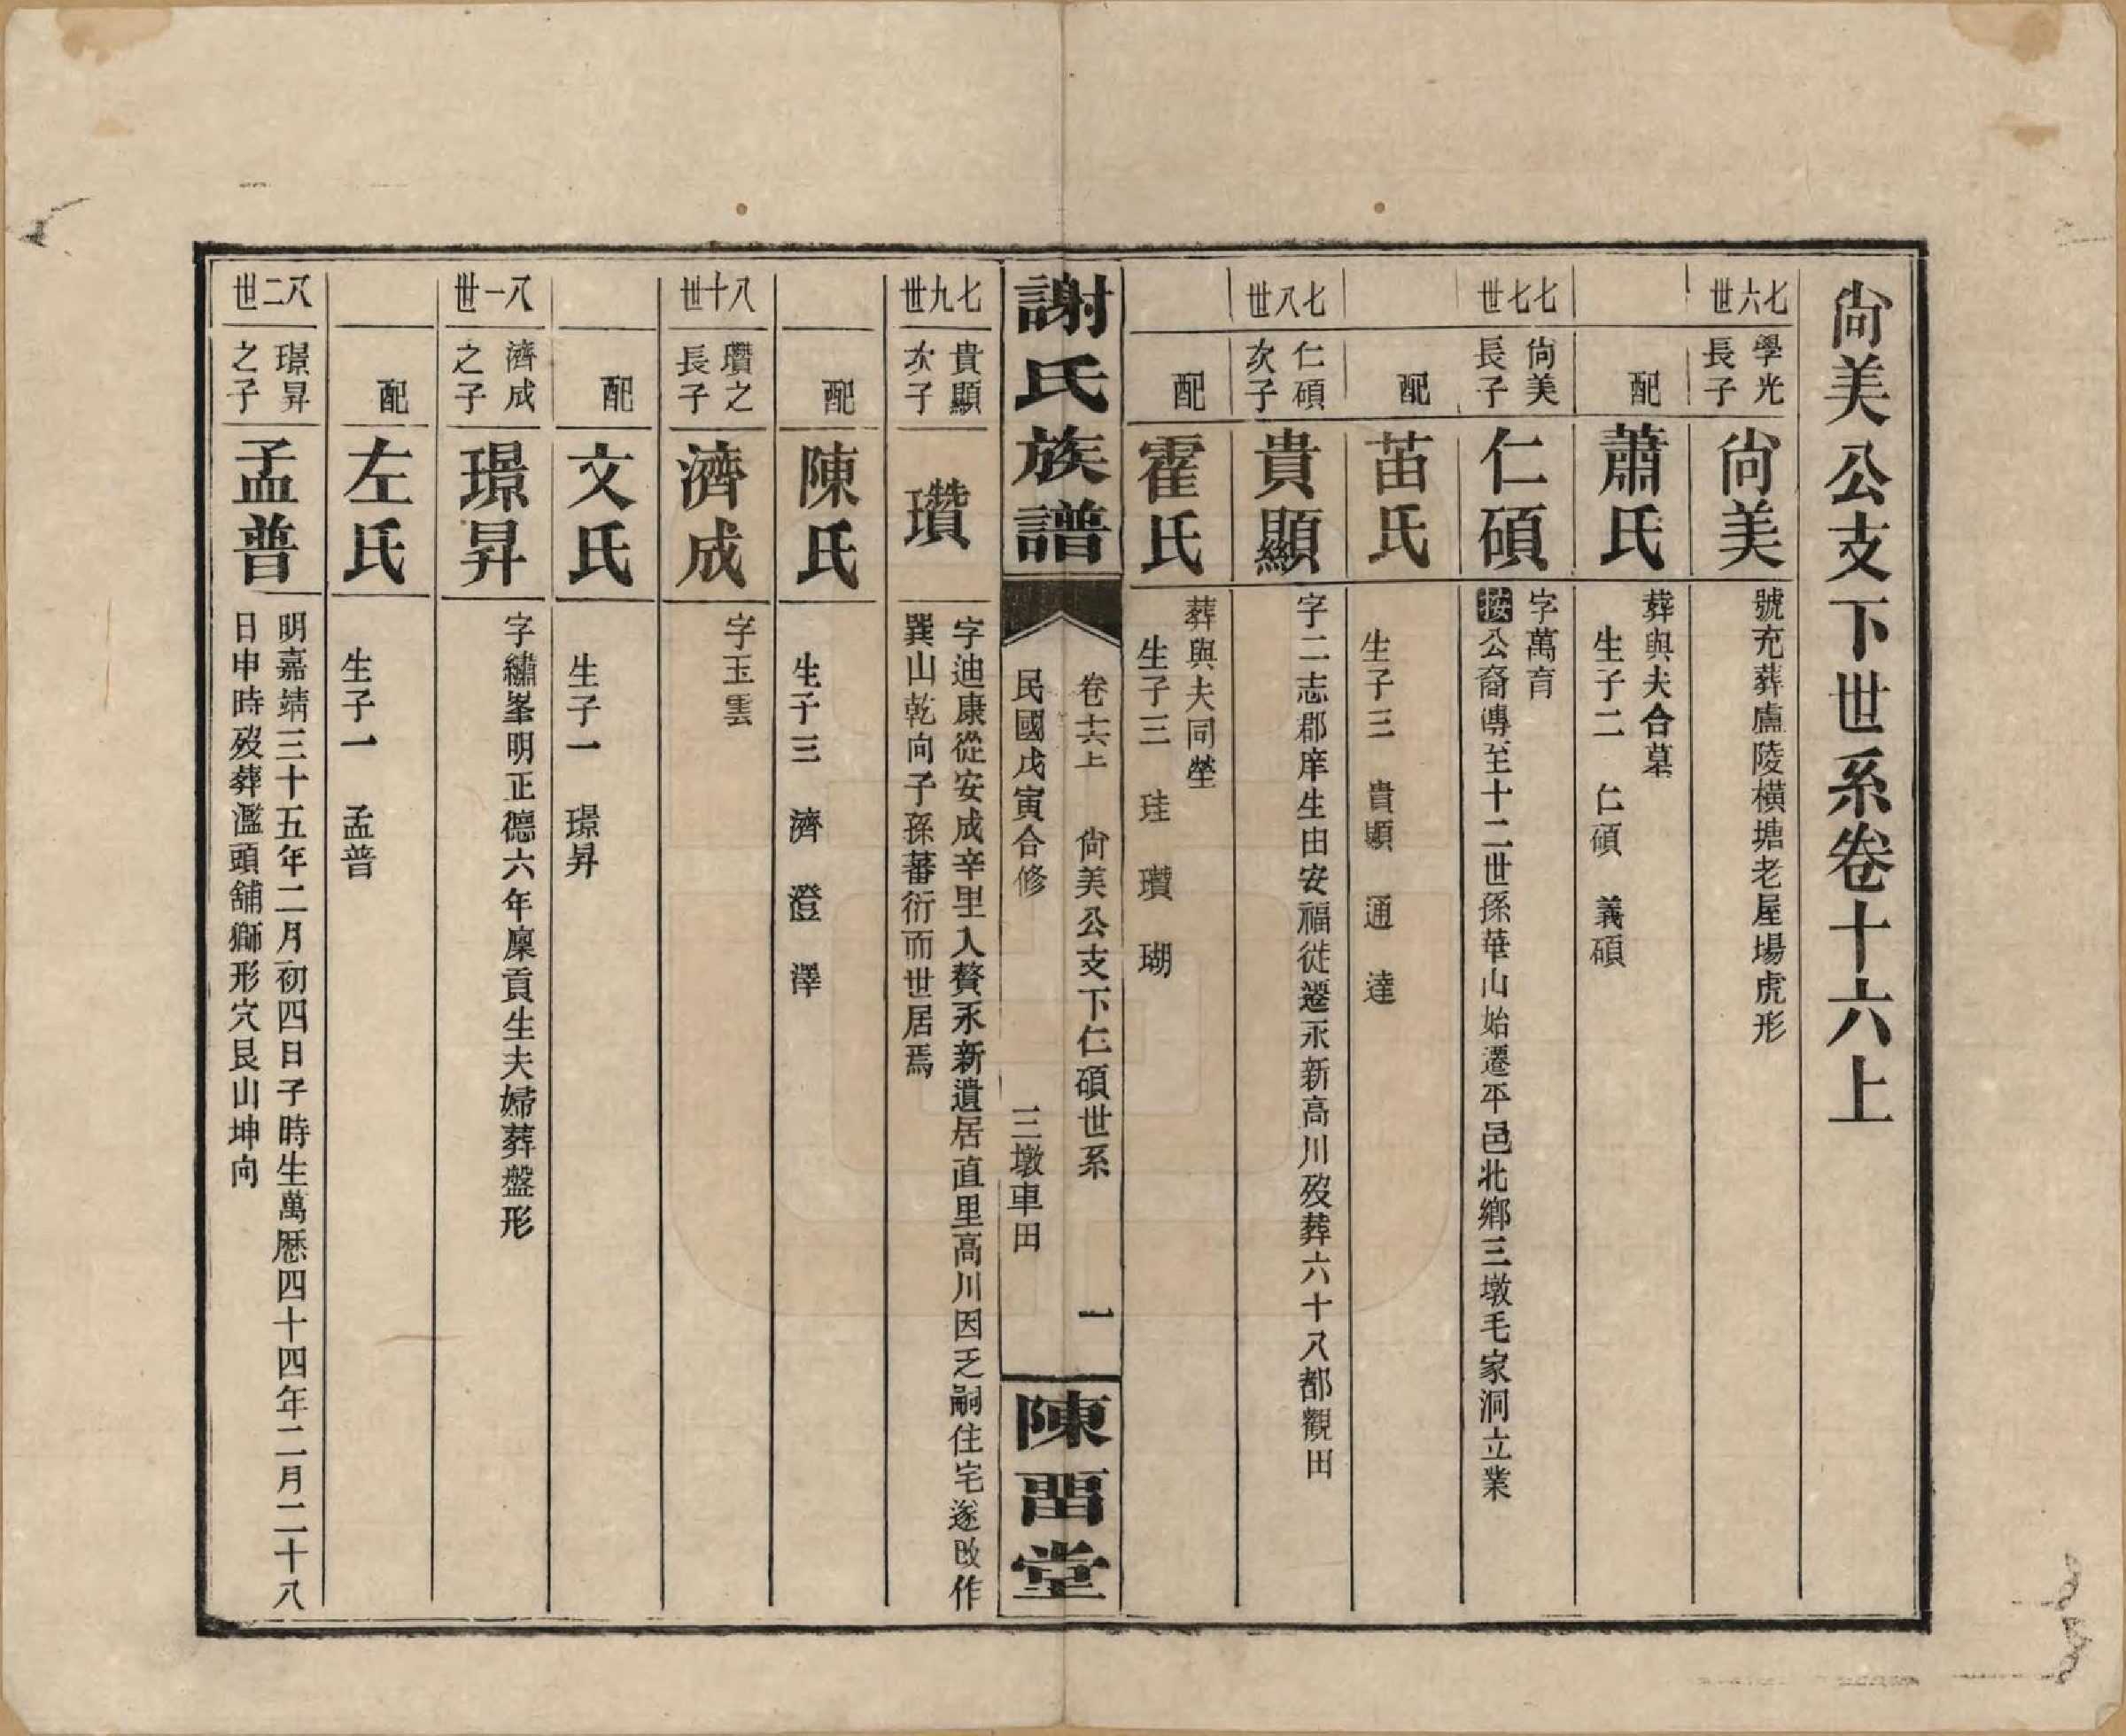 尙美公支下世系卷十六上
七六世
學光
長子
尙美
號充葬廬陵橫塘老屋場虎形
配
蕭氏
葬與夫合墓
生子二 仁碩 義碩
七七世
尙美
長子
仁碩
字萬育
按公裔傳至十二世孫華山始遷平邑北鄉三墩毛家洞立業
配
苗氏
生子三 貴顯 通 達
七八世
仁碩
次子
貴顯
字二志郡庠生由安福徙遷永新高川歿葬六十八都觀田
配
霍氏
葬與夫同塋
生子三 珪 瓚 瑚
謝氏族譜
卷十六上 尙美公支下仁碩世系 一
民國戊寅合修 三墩車田
陳畱堂
七九世
貴顯
次子
瓚
字迪康從安成辛里入贅永新遺居直里高川因乏嗣住宅遂改作
巽山乾向子孫蕃衍而世居焉
配
陳氏
生子三 濟 澄 澤
八十世
瓚之
長子
濟成
字玉雲
配
文氏
生子一 璟昇
八一世
濟成
之子
璟昇
字繡峯明正德六年廩貢生夫婦葬盤形
配
左氏
生子一 孟普
八二世
璟昇
之子
孟普
明嘉靖三十五年二月初四日子時生萬歷四十四年二月二十八
日申時歿葬濫頭舖獅形穴艮山坤向